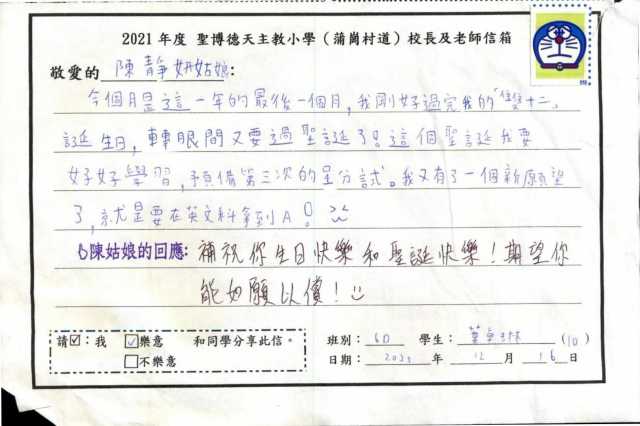 2021 年度 聖博德天主教小學（蒲崗村道）校長及老師信箱
敬愛的 陳靜妍姑娘:
今個月是這一年的最後一個月，我剛好過完我的「雙十二」
誕生日，轉眼間又要過聖誕了！這個聖誕我要
好好學習，預備第三次的呈分試。我又有了一個新願望
了，就是要在英文科拿到A！
陳姑娘的回應: 補祝你生日快樂和聖誕快樂！期望你
能如願以償！
請☑：我 ☑樂意 和同學分享此信。
□不樂意
班別： 6D 學生： 葉 (10)
日期： 2021 年 12 月 16 日